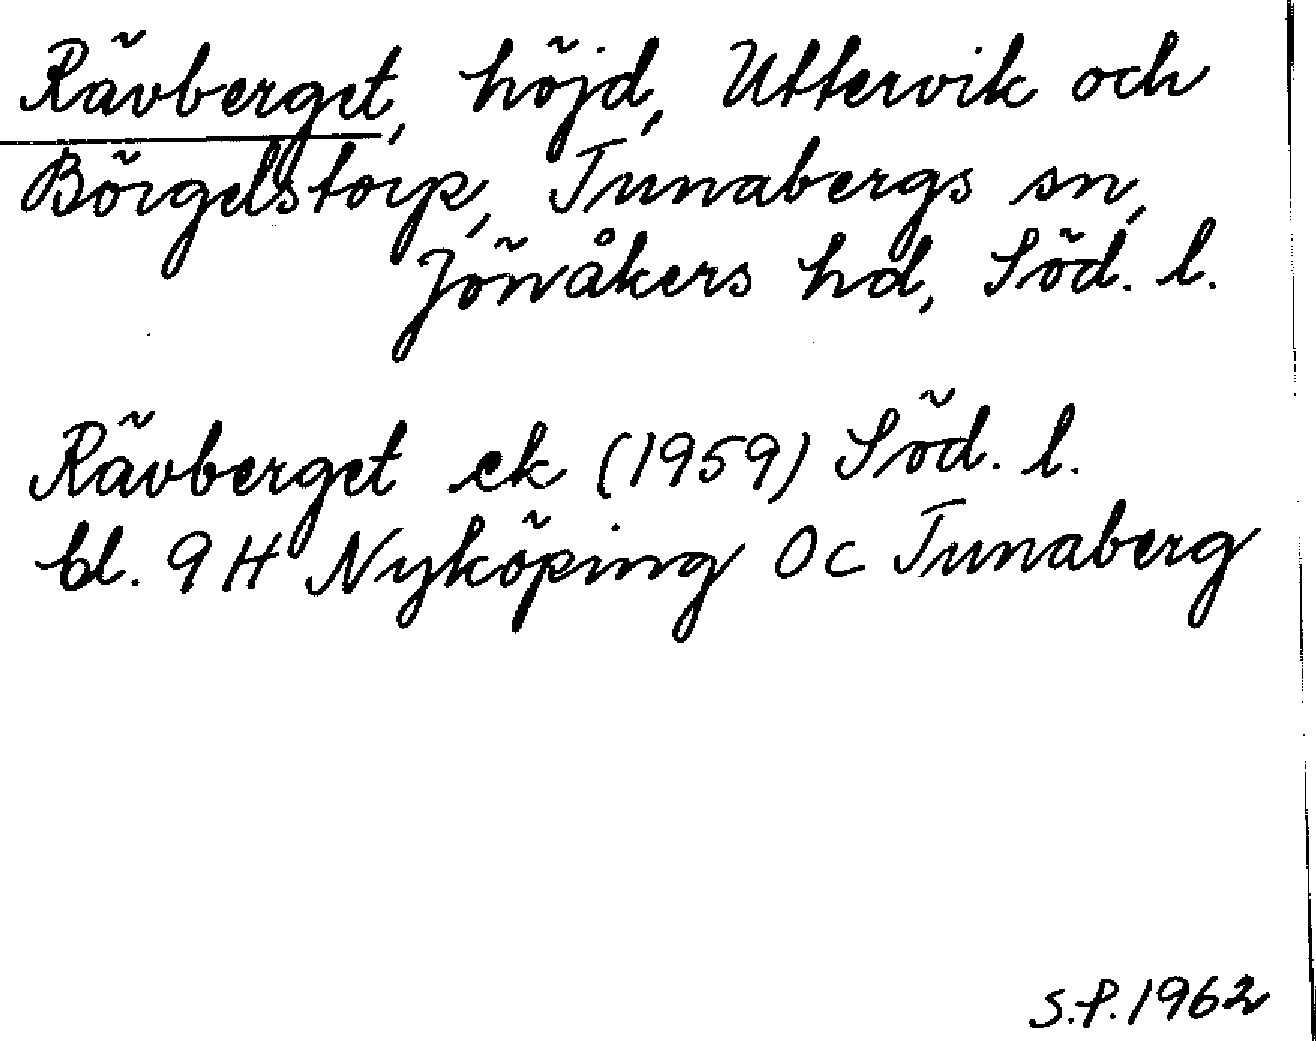 Rävberget, höjd, Uttervik och
Börgelstorp, Tunabergs sn,
Jönåkers hd, Söd. l.
Rävberget ek (1959) Söd. l.
bl. 9 H Nyköping 0 c Tunaberg
S.P. 1962